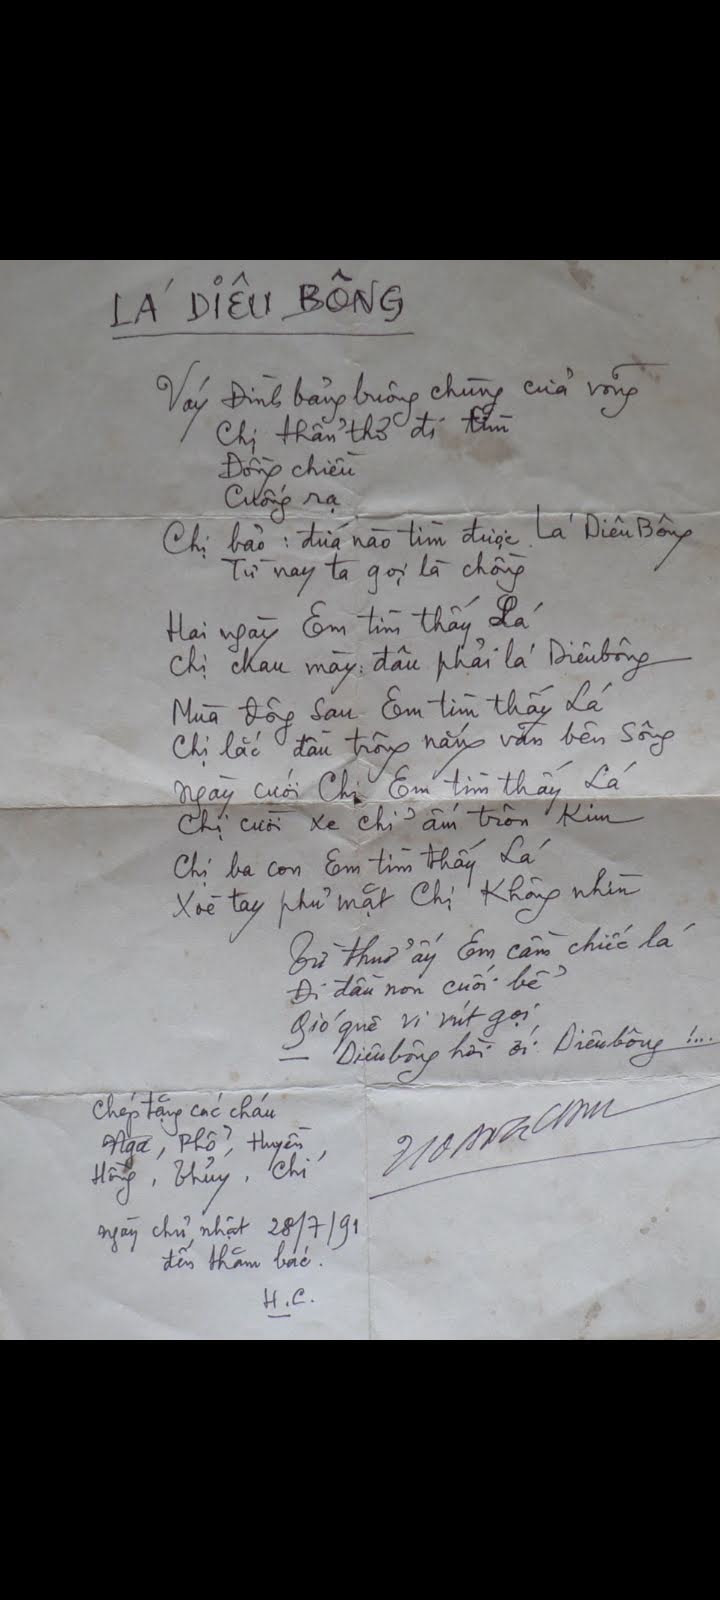 LÁ DIÊU BÔNG
Váy Đình bảng buông chùng cửa võng
Chị thẩn thơ đi tìm
Đồng chiều
Cuống rạ
Chị bảo: đứa nào tìm được Lá Diêu Bông
Từ nay ta gọi là chồng
Hai ngày Em tìm thấy Lá
Chị chau mày: đâu phải lá Diêu bông
Mùa Đông sau Em tìm thấy Lá
Chị lắc đầu trông nắng vãn bên Sông
Ngày cưới Chị Em tìm thấy Lá
Chị cười xe chỉ ấm trôn Kim
Chị ba con Em tìm thấy Lá
Xoè tay phủ mặt Chị Không nhìn
Từ thuở ấy Em cầm chiếc lá
Đi đầu non cuối bể
Gió quê vi vút gọi
— Diêu bông hời ới Diêu bông !...
Chép tặng các cháu
Nga, Phổ, Huyền,
Hồng, Thủy, Chí
HOANGCAM
ngày chủ nhật 28/7/91
đến thăm bác.
H.C.